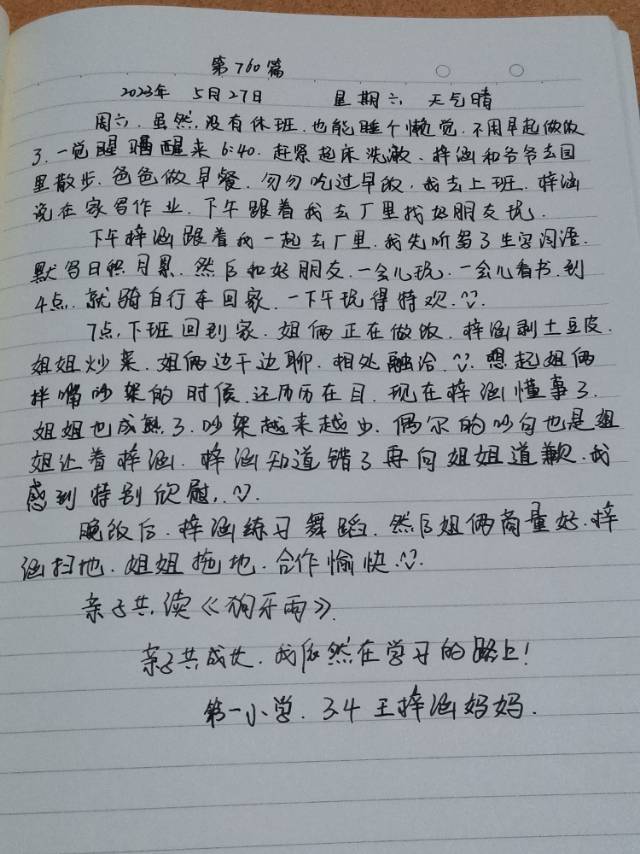 第760篇
2023年 5月27日 星期六 天气晴
周六,虽然没有休班,也能睡个懒觉,不用早起做饭
了,一觉醒来6:40,赶紧起床洗漱,梓涵和爷爷去园
里散步,爸爸做早餐,匆匆吃过早饭,我去上班,梓涵
说在家写作业,下午跟着我去厂里找好朋友玩.
下午梓涵跟着我一起去厂里,我先听写了生字词语,
默写日积月累,然后和好朋友,一会儿玩,一会儿看书,到
4点,就骑自行车回家,一下午玩得特欢.
7点,下班回到家,姐俩正在做饭,梓涵剥土豆皮,
姐姐炒菜,姐俩边干边聊,相处融洽.想起姐俩
拌嘴吵架的时候,还历历在目,现在梓涵懂事了,
姐姐也成熟了,吵架越来越少,偶尔的吵句也是姐
姐让着梓涵,梓涵知道错了再向姐姐道歉,我
感到特别欣慰.
晚饭后,梓涵练习舞蹈,然后姐俩商量好,梓
涵扫地,姐姐拖地,合作愉快.
亲子共读《狗牙雨》.
亲子共成长,我依然在学习的路上!
第一小学.3.4王梓涵妈妈.